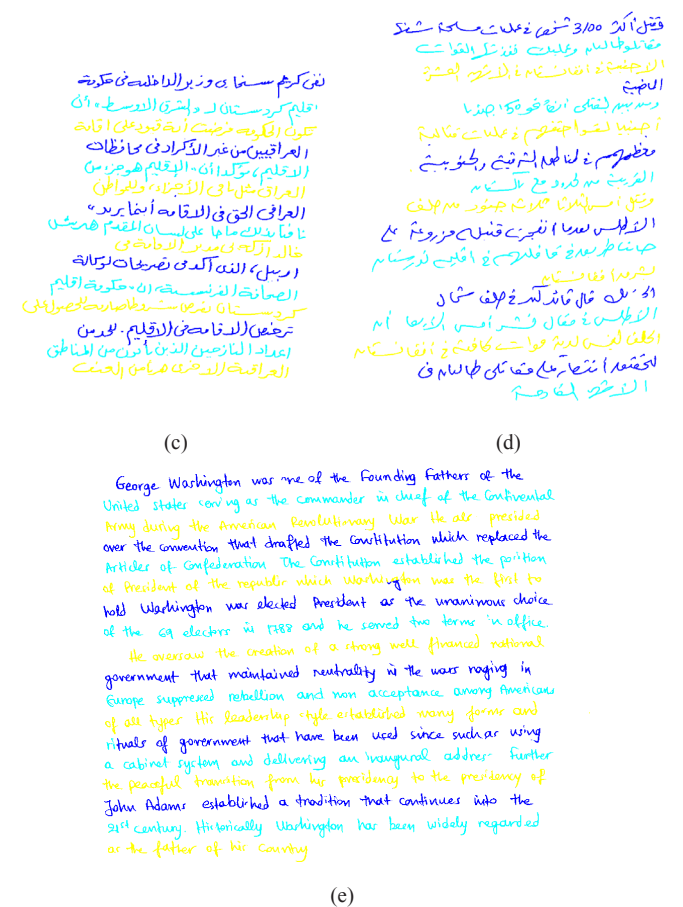 نفى كريم سنجاري وزير الداخلية في حكومة
اقليم كردستان لـ والشرق الاوسط، أن
تكون الحكومة فرضت أية قيود على اقامة
العراقيين من غير الأكراد في محافظات
الاقليم، مؤكدا أن، الإقليم هو جزء من
العراق مثل باقي الأجزاء، وللمواطن
العراقي الحق في الاقامة أينما يريد،
نافيا بذلك ما جاء على لسان المقدم
خالد مدير الاقامة في
اربيل، الذي أكد في تصريحات لوكالة
الصحافة الفرنسية، ان، حكومة اقليم
كردستان تفرض شروطا للحصول على
ترخيص الاقامة في الاقليم، للحد من
اعداد النازحين الذين يأتون من المناطق
العراقية الاخرى هربا من العنف
(c)
وقتل أكثر 3100 شخص في عمليات مسلحة شنها
مقاتلو طالبان وعمليات تنفذها القوات
الاجنبية في افغانستان في الاشهر العشرة
الماضية
ومن بين القتلى نحو 150 جنديا
أجنبيا لقوا حتفهم في عمليات قتالية
معظمهم في المناطق الشرقية والجنوبية
القريبة من الحدود مع باكستان
وقتل أمس ثلاثة جنود من حلف
الأطلسي بعدما انفجرت قنبلة مزروعة على
جانب طريق في قافلتهم في اقليم نورستان
بشرق أفغانستان
الى ذلك قال قائد كبير في حلف شمال
الأطلسي في مقال نشر أمس الأربعاء أن
الحلف ليس لديه قوات كافية في أفغانستان
لتحقيق انتصار على مقاتلي طالبان في
الأشهر القادمة
(d)
George Washington was one of the Founding Fathers of the
United States serving as the commander in chief of the Continental
Army during the American Revolutionary War He als presided
over the convention that drafted the Constitution which replaced the
Articles of Confederation The Constitution established the position
of President of the republic which Washington was the first to
hold Washington was elected President as the unanimous choice
of the 69 electors in 1788 and he served two terms in office.
He oversaw the creation of a strong well financed national
government that maintained neutrality in the wars raging in
Europe suppressed rebellion and non acceptance among American
of all types His leadership style established many forms and
rituals of government that have been used since such as using
a cabinet system and delivering an inaugural address Further
the peaceful transition from his presidency to the presidency of
John Adams established a tradition that continues into the
21st century. Historically Washington has been widely regarded
as the father of his country
(e)